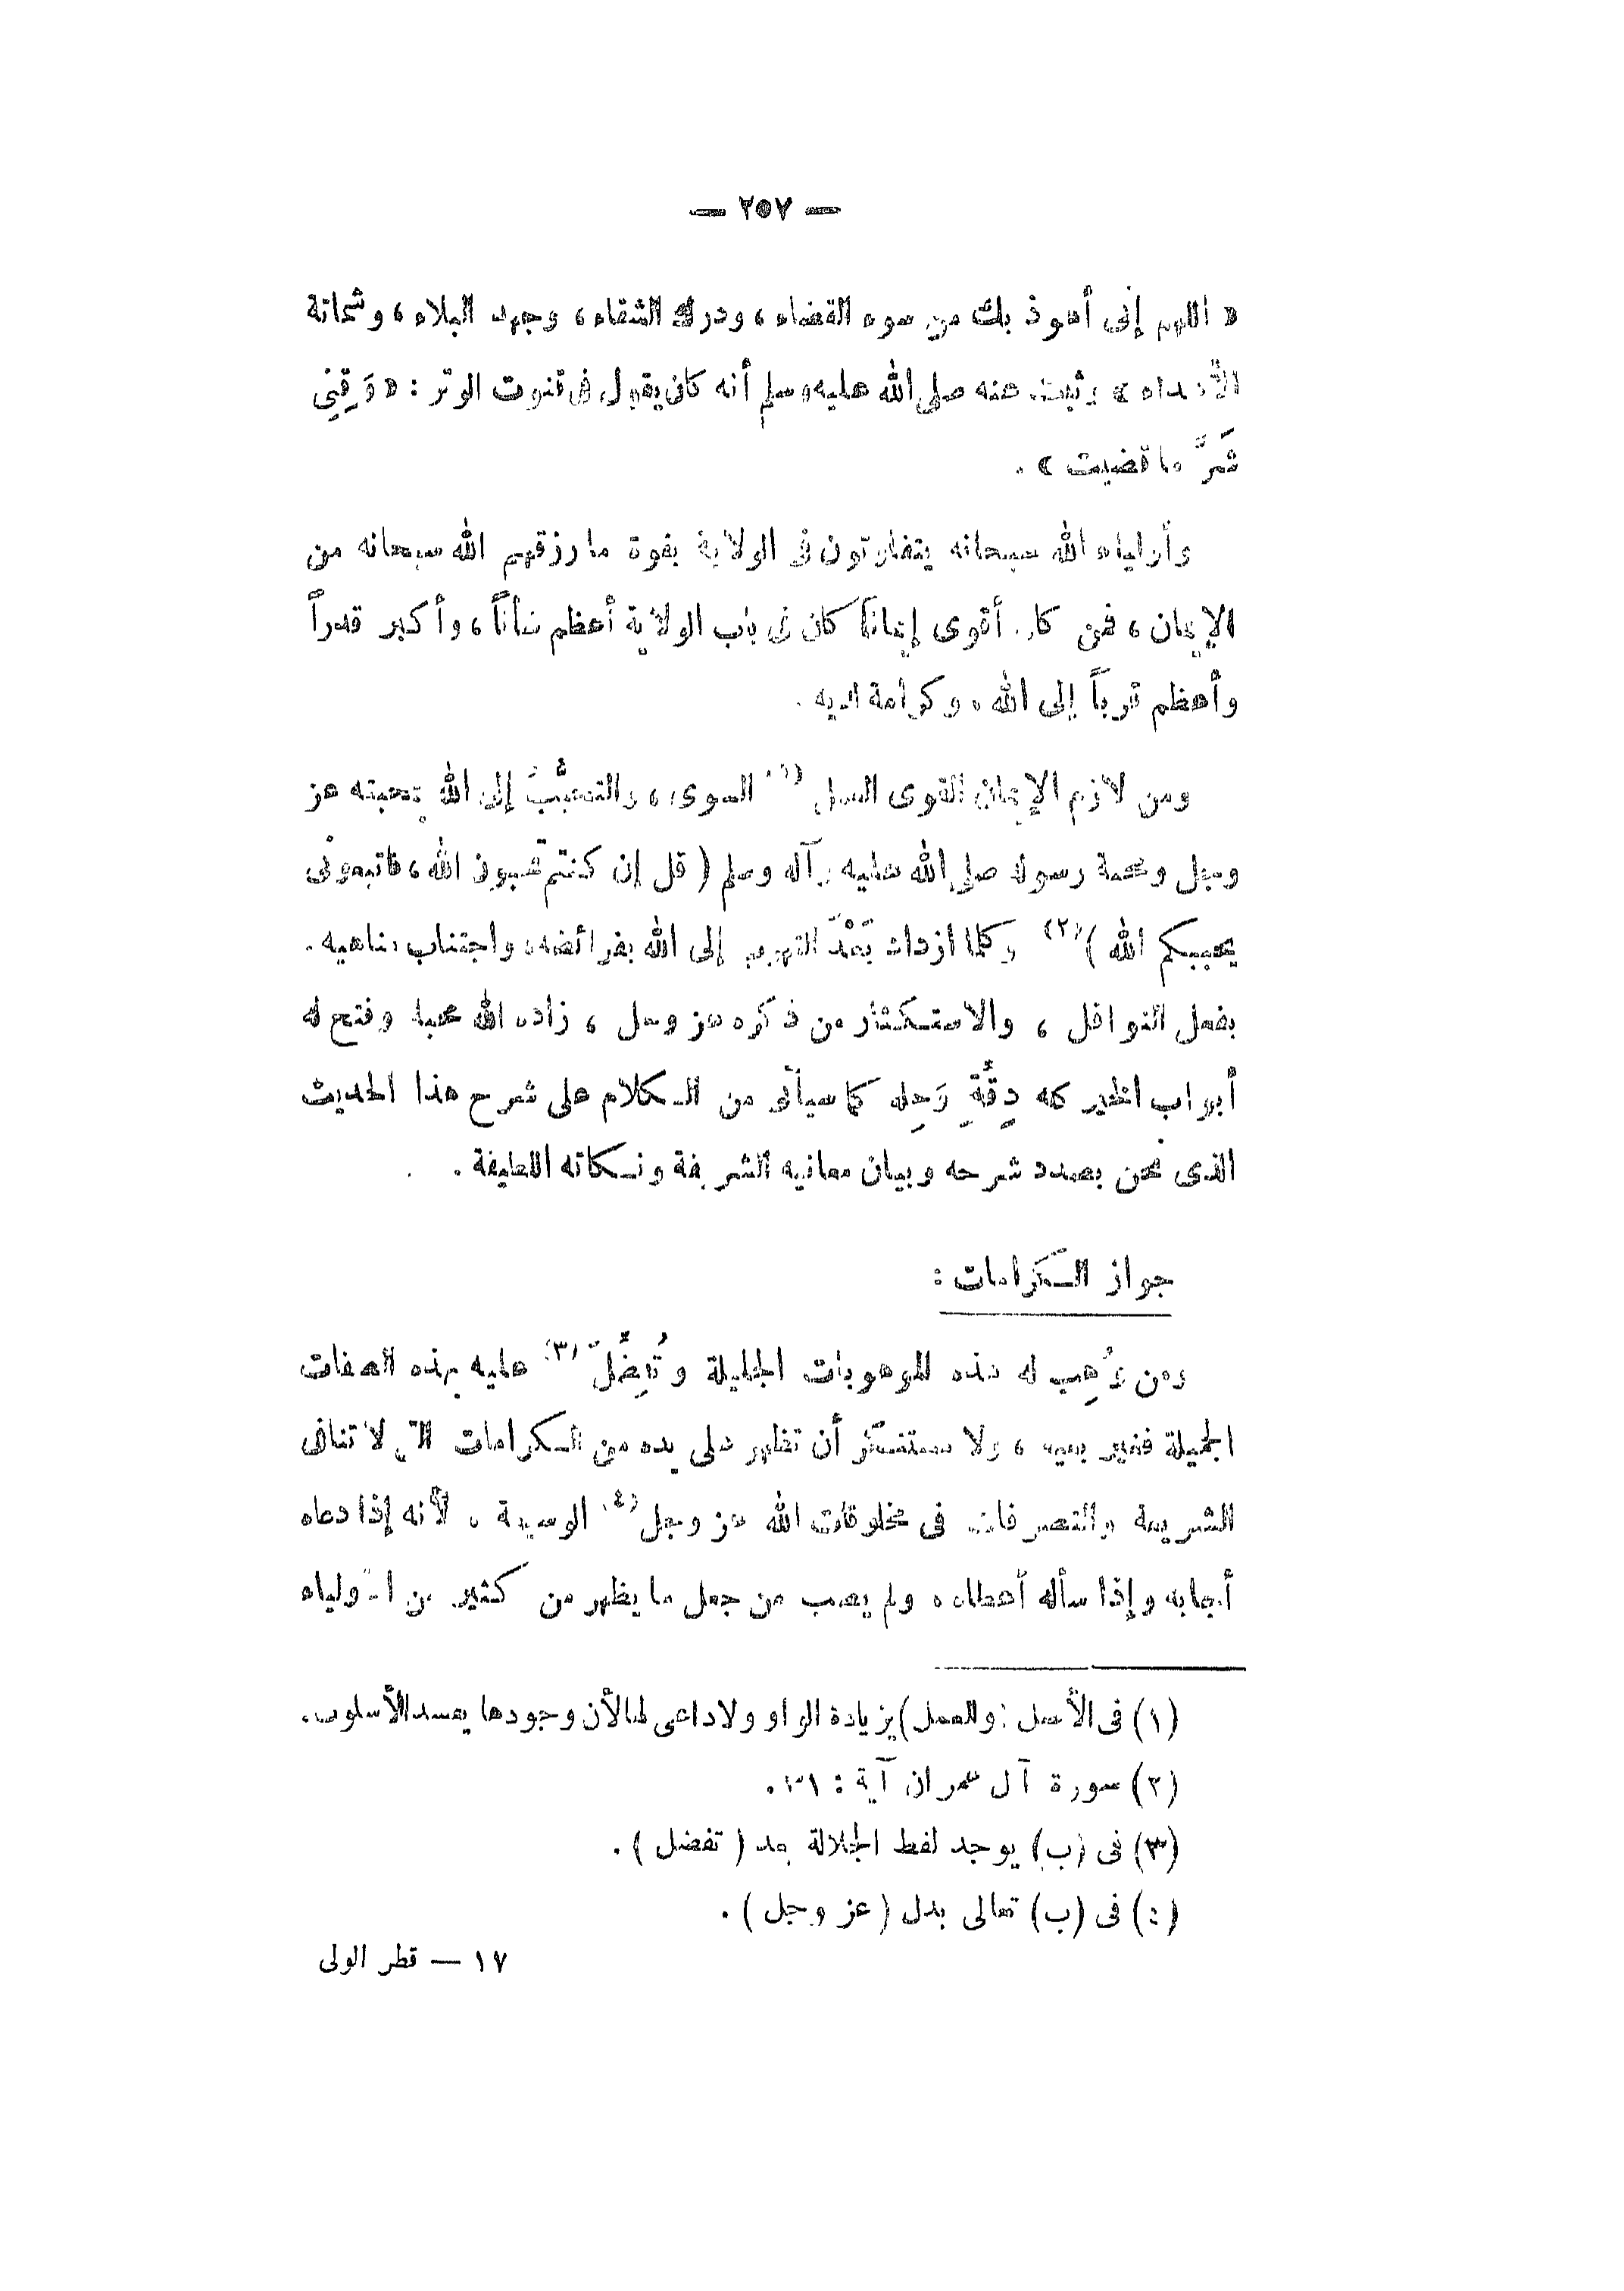 — ٢٥٧ —
« اللهم إنى أعوذ بك من سوء القضاء ، ودرك الشقاء ، وجهد البلاء ، وشماتة
الأعداء » وثبت عنه صلى الله عليه وسلم أنه كان يقول فى قنوت الوتر : « وَقِنِى
شَرَّ ما قضيت » .
وأولياء الله سبحانه يتفاوتون فى الولاية بقوة ما رزقهم الله سبحانه من
الإيمان ، فمن كان أقوى إيماناً كان فى باب الولاية أعظم شأناً ، وأكبر قدراً
وأعظم قرباً إلى الله ، وكرامة لديه .
ومن لازم الإيمان القوى العمل (١) السوى ، والتحبُّبُ إلى الله بمحبته عز
وجل ومحبة رسوله صلى الله عليه وآله وسلم ( قل إن كنتم تحبون الله ، فاتبعونى
يحببكم الله )(٢) وكلما ازداد بَعْدَ التقرب إلى الله بفرائضه ، واجتناب مناهيه .
بفعل النوافل ، والاستكثار من ذكره عز وجل ، زاده الله محبة وفتح له
أبواب الخير كله دِقِّهِ وَجِلِّه كما سيأتى من الكلام على شرح هذا الحديث
الذى نحن بصدد شرحه وبيان معانيه الشريفة ونكاته اللطيفة .
جواز الكَرَامات :
ومن وُهِب له هذه الموهوبات الجليلة وتُفُضِّلَ (٣) عليه بهذه الصفات
الجميلة فغير بعيد ، ولا مستنكر أن تظهر على يده من الكرامات التى لا تنافى
الشريعة والتصرفات فى مخلوقات الله عز وجل (٤) الوسيعة ، لأنه إذا دعاه
أجابه وإذا سأله أعطاه ولم يصب من جعل ما يظهر من كثير من الأولياء
(١) فى الأصل : والعمل ) بزيادة الواو ولا داعى لها لأن وجودها يفسد الأسلوب .
(٢) سورة آل عمران آية : ٣١ .
(٣) فى (ب) يوجد لفظ الجلالة بعد ( تفضل ) .
(٤) فى (ب) تعالى بدل ( عز وجل ) .
١٧ — قطر الولى